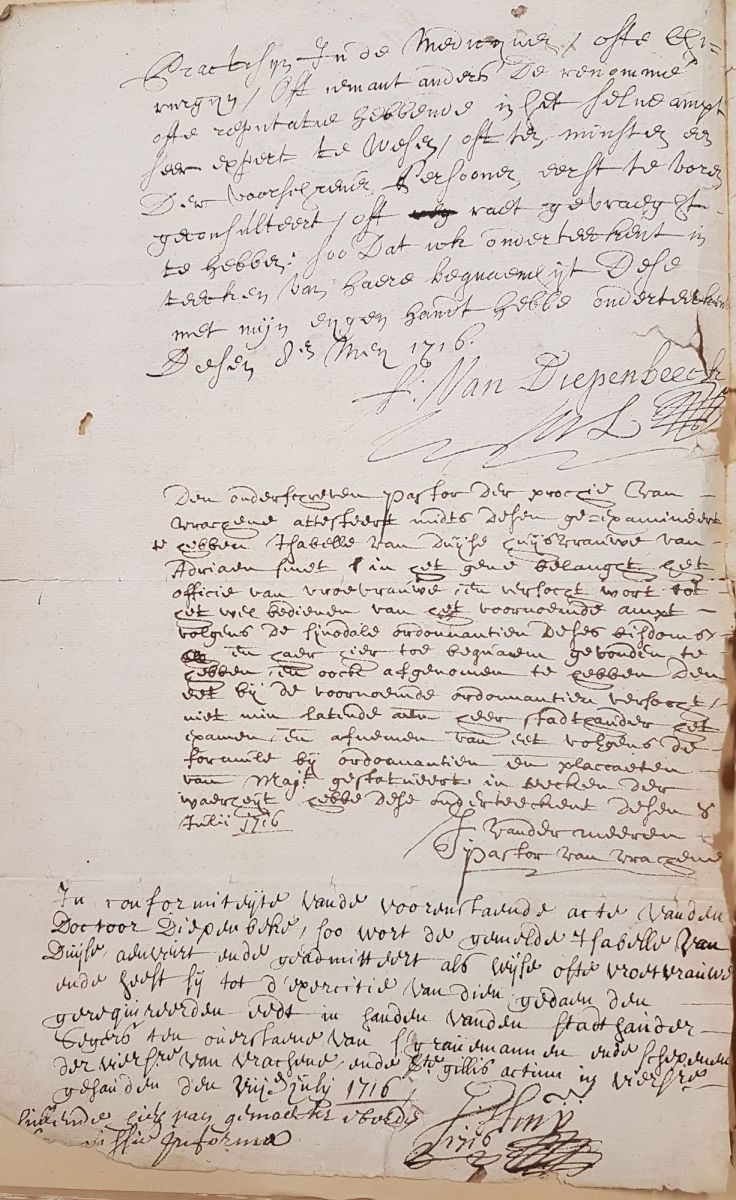 Practisyn In de Medicynen, ofte Chi-
rurgyn, Oft iemant anders De renommé
ofte reputatie Hebbende in het selve ampt
seer expert te Wesen, oft ten minsten een
Der voorschreven Persoonen eerst te voren
geconsulteert, oft raet gevraeght
te Hebben; soo Dat ick onderteekent in
teecken van Haere bequaemheyt Dese
met mijn eygen Handt Hebbe onderteekent
Desen 8en Mey 1716.
Van Diepenbeeck
M L
Den onderschreven pastor der prochie van
vrachene attesteert midts desen ge-examineert
te hebben Isabelle van Duijse huijsvrauwe van
Adriaen Smet in het gene belanght het
officie van vroevrauwe, en versocht wort tot
het wel bedienen van het voornoemde ampt
volgens de sijnodale ordonnantien deses bisdoms
en haer hier toe bequaem gevonden te
hebben, en oock afgenomen te hebben den
eet bij de voornoemde ordonnantien versocht,
niet min latende aen heer stadthouder het
examen, en afnemen van eet volgens de
formule bij ordonnantien en placcaeten
van Majt. gestatueert in teecken der
waerheijt hebbe dese onderteeckent desen 8
Julii 1716
J vander meeren
pastor van vrachene
In conformiteyte vande voorenstaende acte vanden
Doctoor Diepenbeke, soo wort de gemelde Isabelle Van
Duijse, aenveirt ende geadmitteert als wijse ofte vroetvrauwe
ende heeft sij tot d'exercitie van dien gedaen den
gerequireerden eedt in handen vanden stadthauder
Segers ten overstaene van grauemannen ende schepenen
der viersre van vrachene, ende gillis actum in viersre
gehauden den July 1716,
gemaeckt
informa
1716